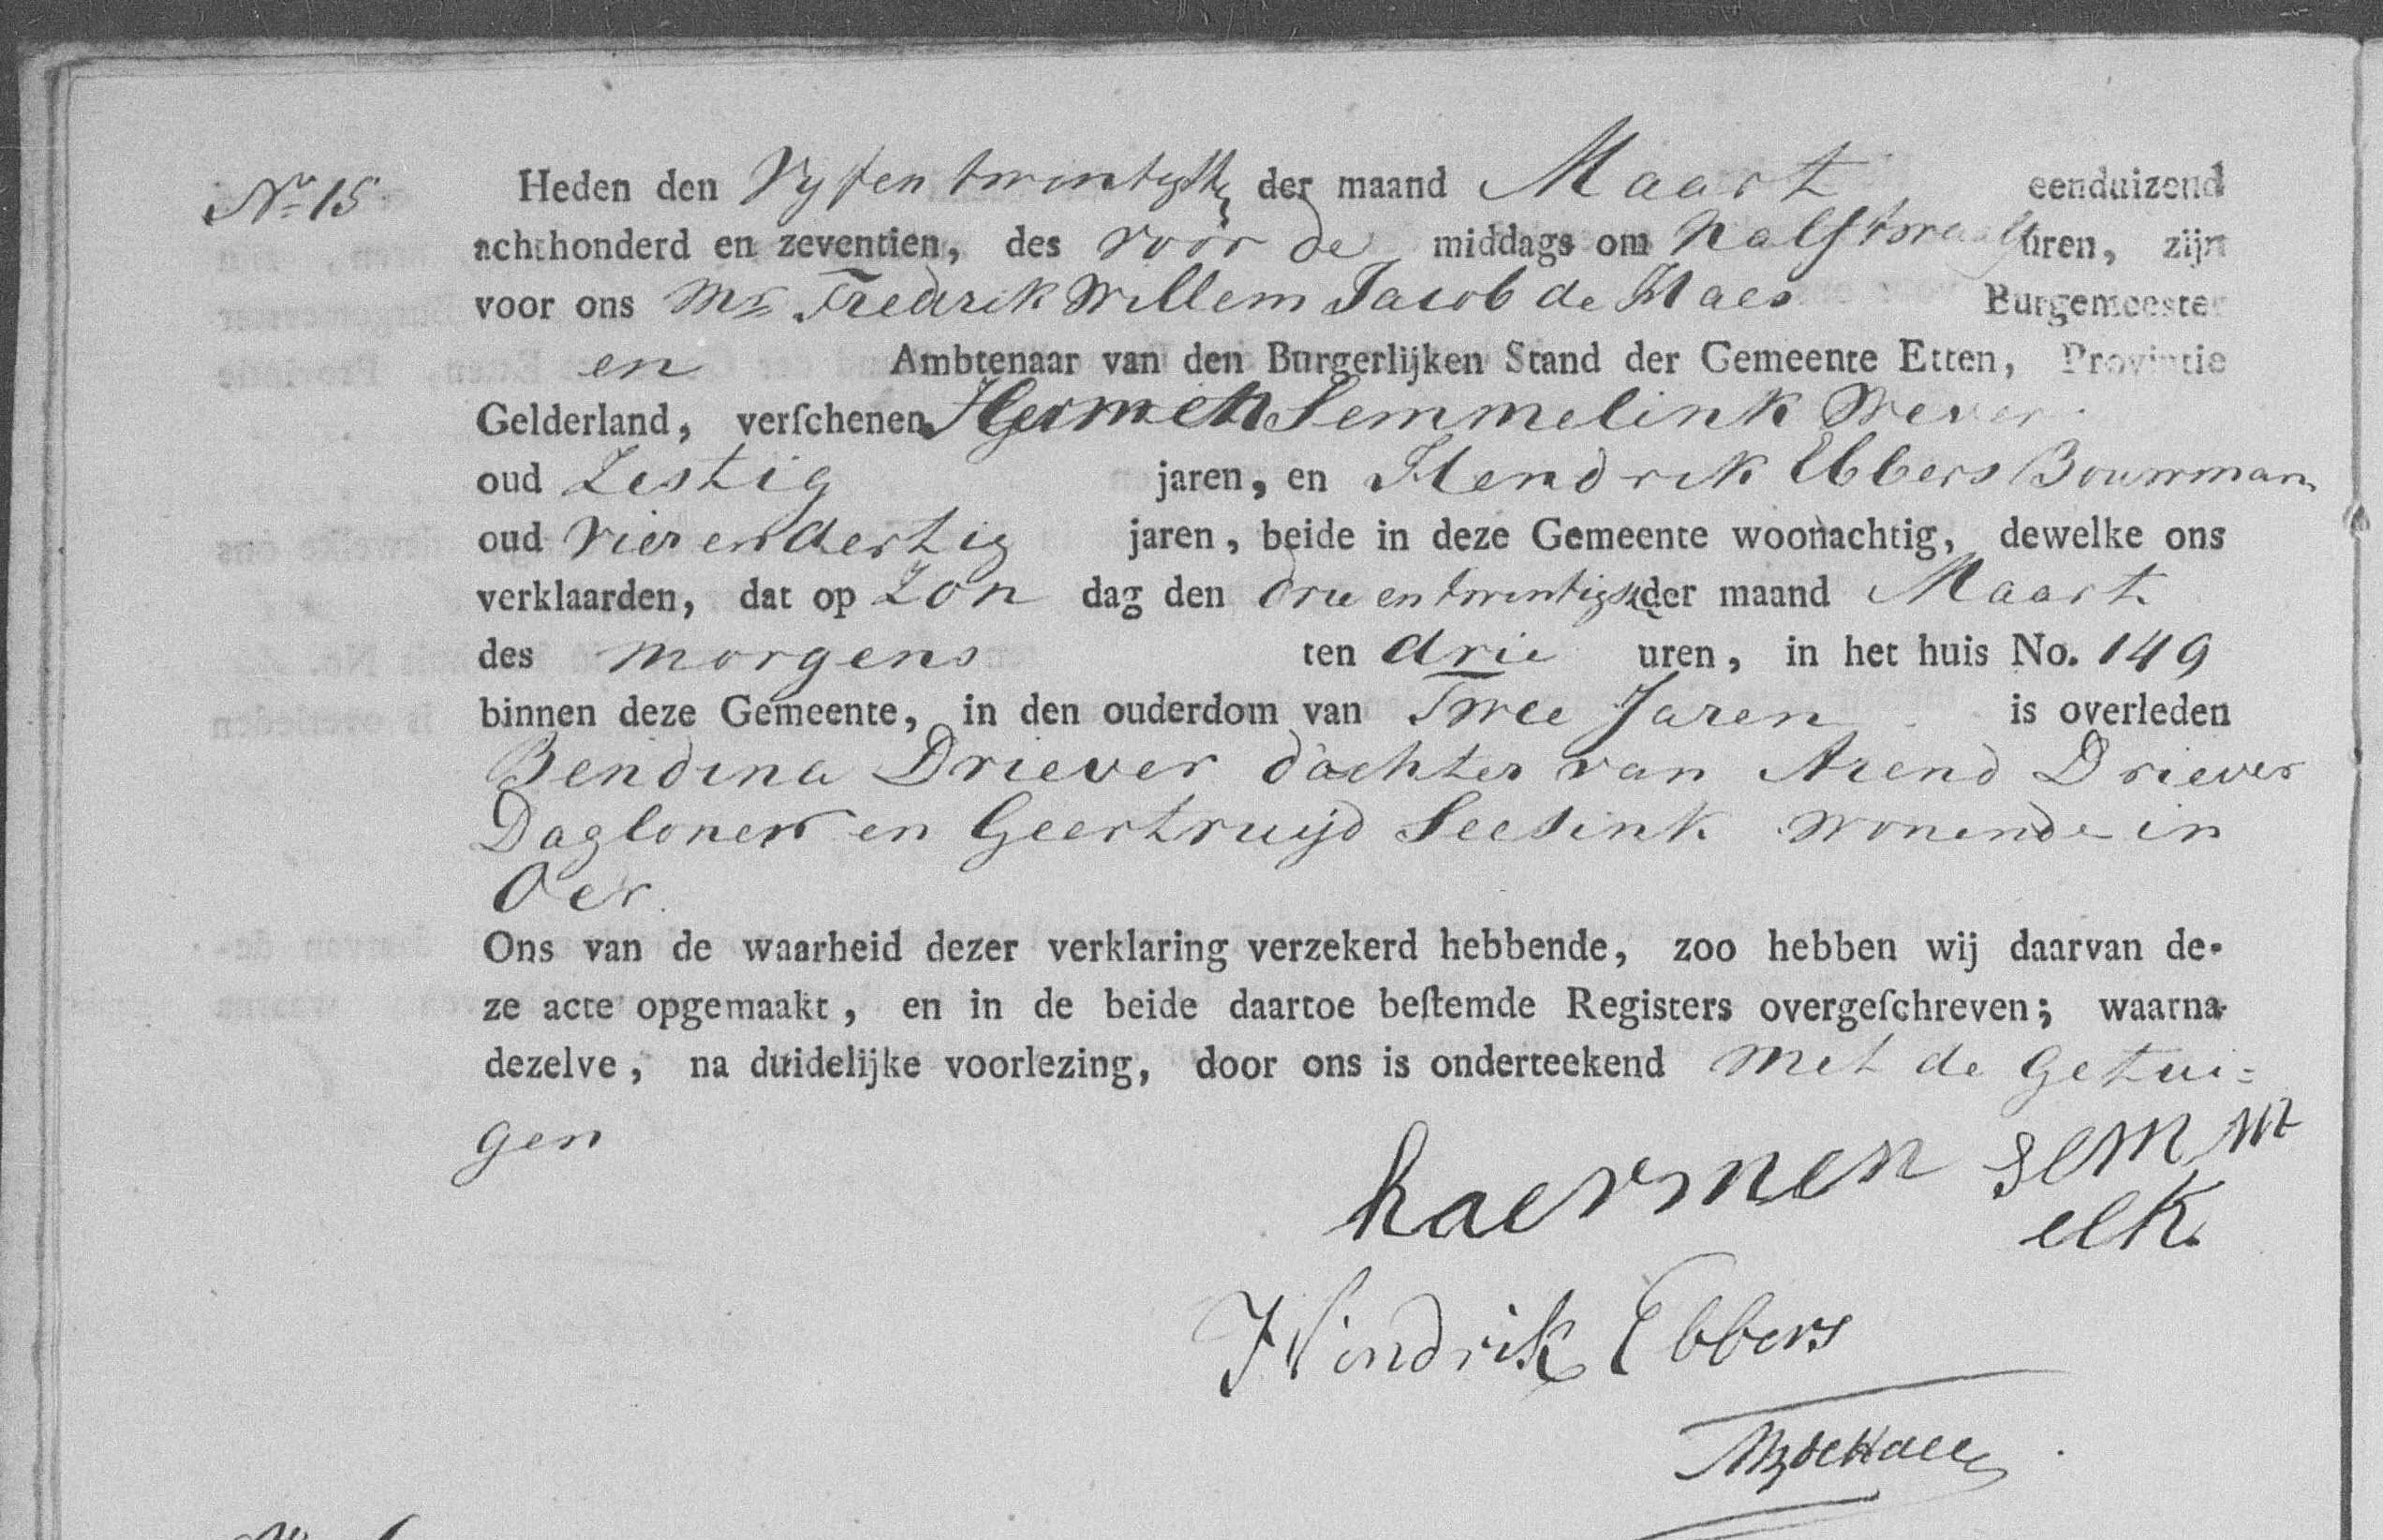 No 15 Heden den Vyfentwintigste der maand Maart eenduizend
achthonderd en zeventien, des voor de middags om half twaalf uren, zijn
voor ons Mr. Fredrik Willem Jacob de Haes Burgemeester
en Ambtenaar van den Burgerlijken Stand der Gemeente Etten, Provintie
Gelderland, verſchenen Hermen Semmelink Wever
oud Zestig jaren, en Hendrik Ebbers Bouwman
oud vier en dertig jaren, beide in deze Gemeente woonachtig, dewelke ons
verklaarden, dat op Zon dag den drieentwintigste der maand Maart
des morgens ten drie uren, in het huis No. 149
binnen deze Gemeente, in den ouderdom van Twee Jaren is overleden
Bendina Driever dochter van Arend Driever
Dagloner en Geertruijd Seesink wonende in
Oer.
Ons van de waarheid dezer verklaring verzekerd hebbende, zoo hebben wij daarvan de-
ze acte opgemaakt, en in de beide daartoe beſtemde Registers overgeſchreven; waarna
dezelve, na duidelijke voorlezing, door ons is onderteekend met de getui=
gen
haermen semm
elk
Hindrik Ebbers